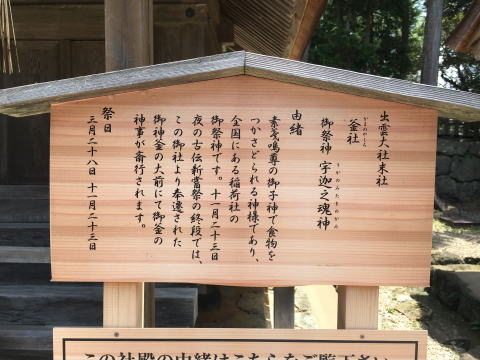 出雲大社末社
かまのやしろ
釜社
うかのみたまのかみ
御祭神 宇迦之魂神
由緒
素戔嗚尊の御子神で食物を
つかさどれる神様であり、
全国にある稲荷社の
御祭神です。十一月二十三日
夜の古伝新嘗祭の終段では、
この御社より奉遷された
御神釜の大前にて御釜の
神事が斎行されます。
祭日
三月二十八日 十一月二十三日
この社殿の由緒はこちらをご覧下さい